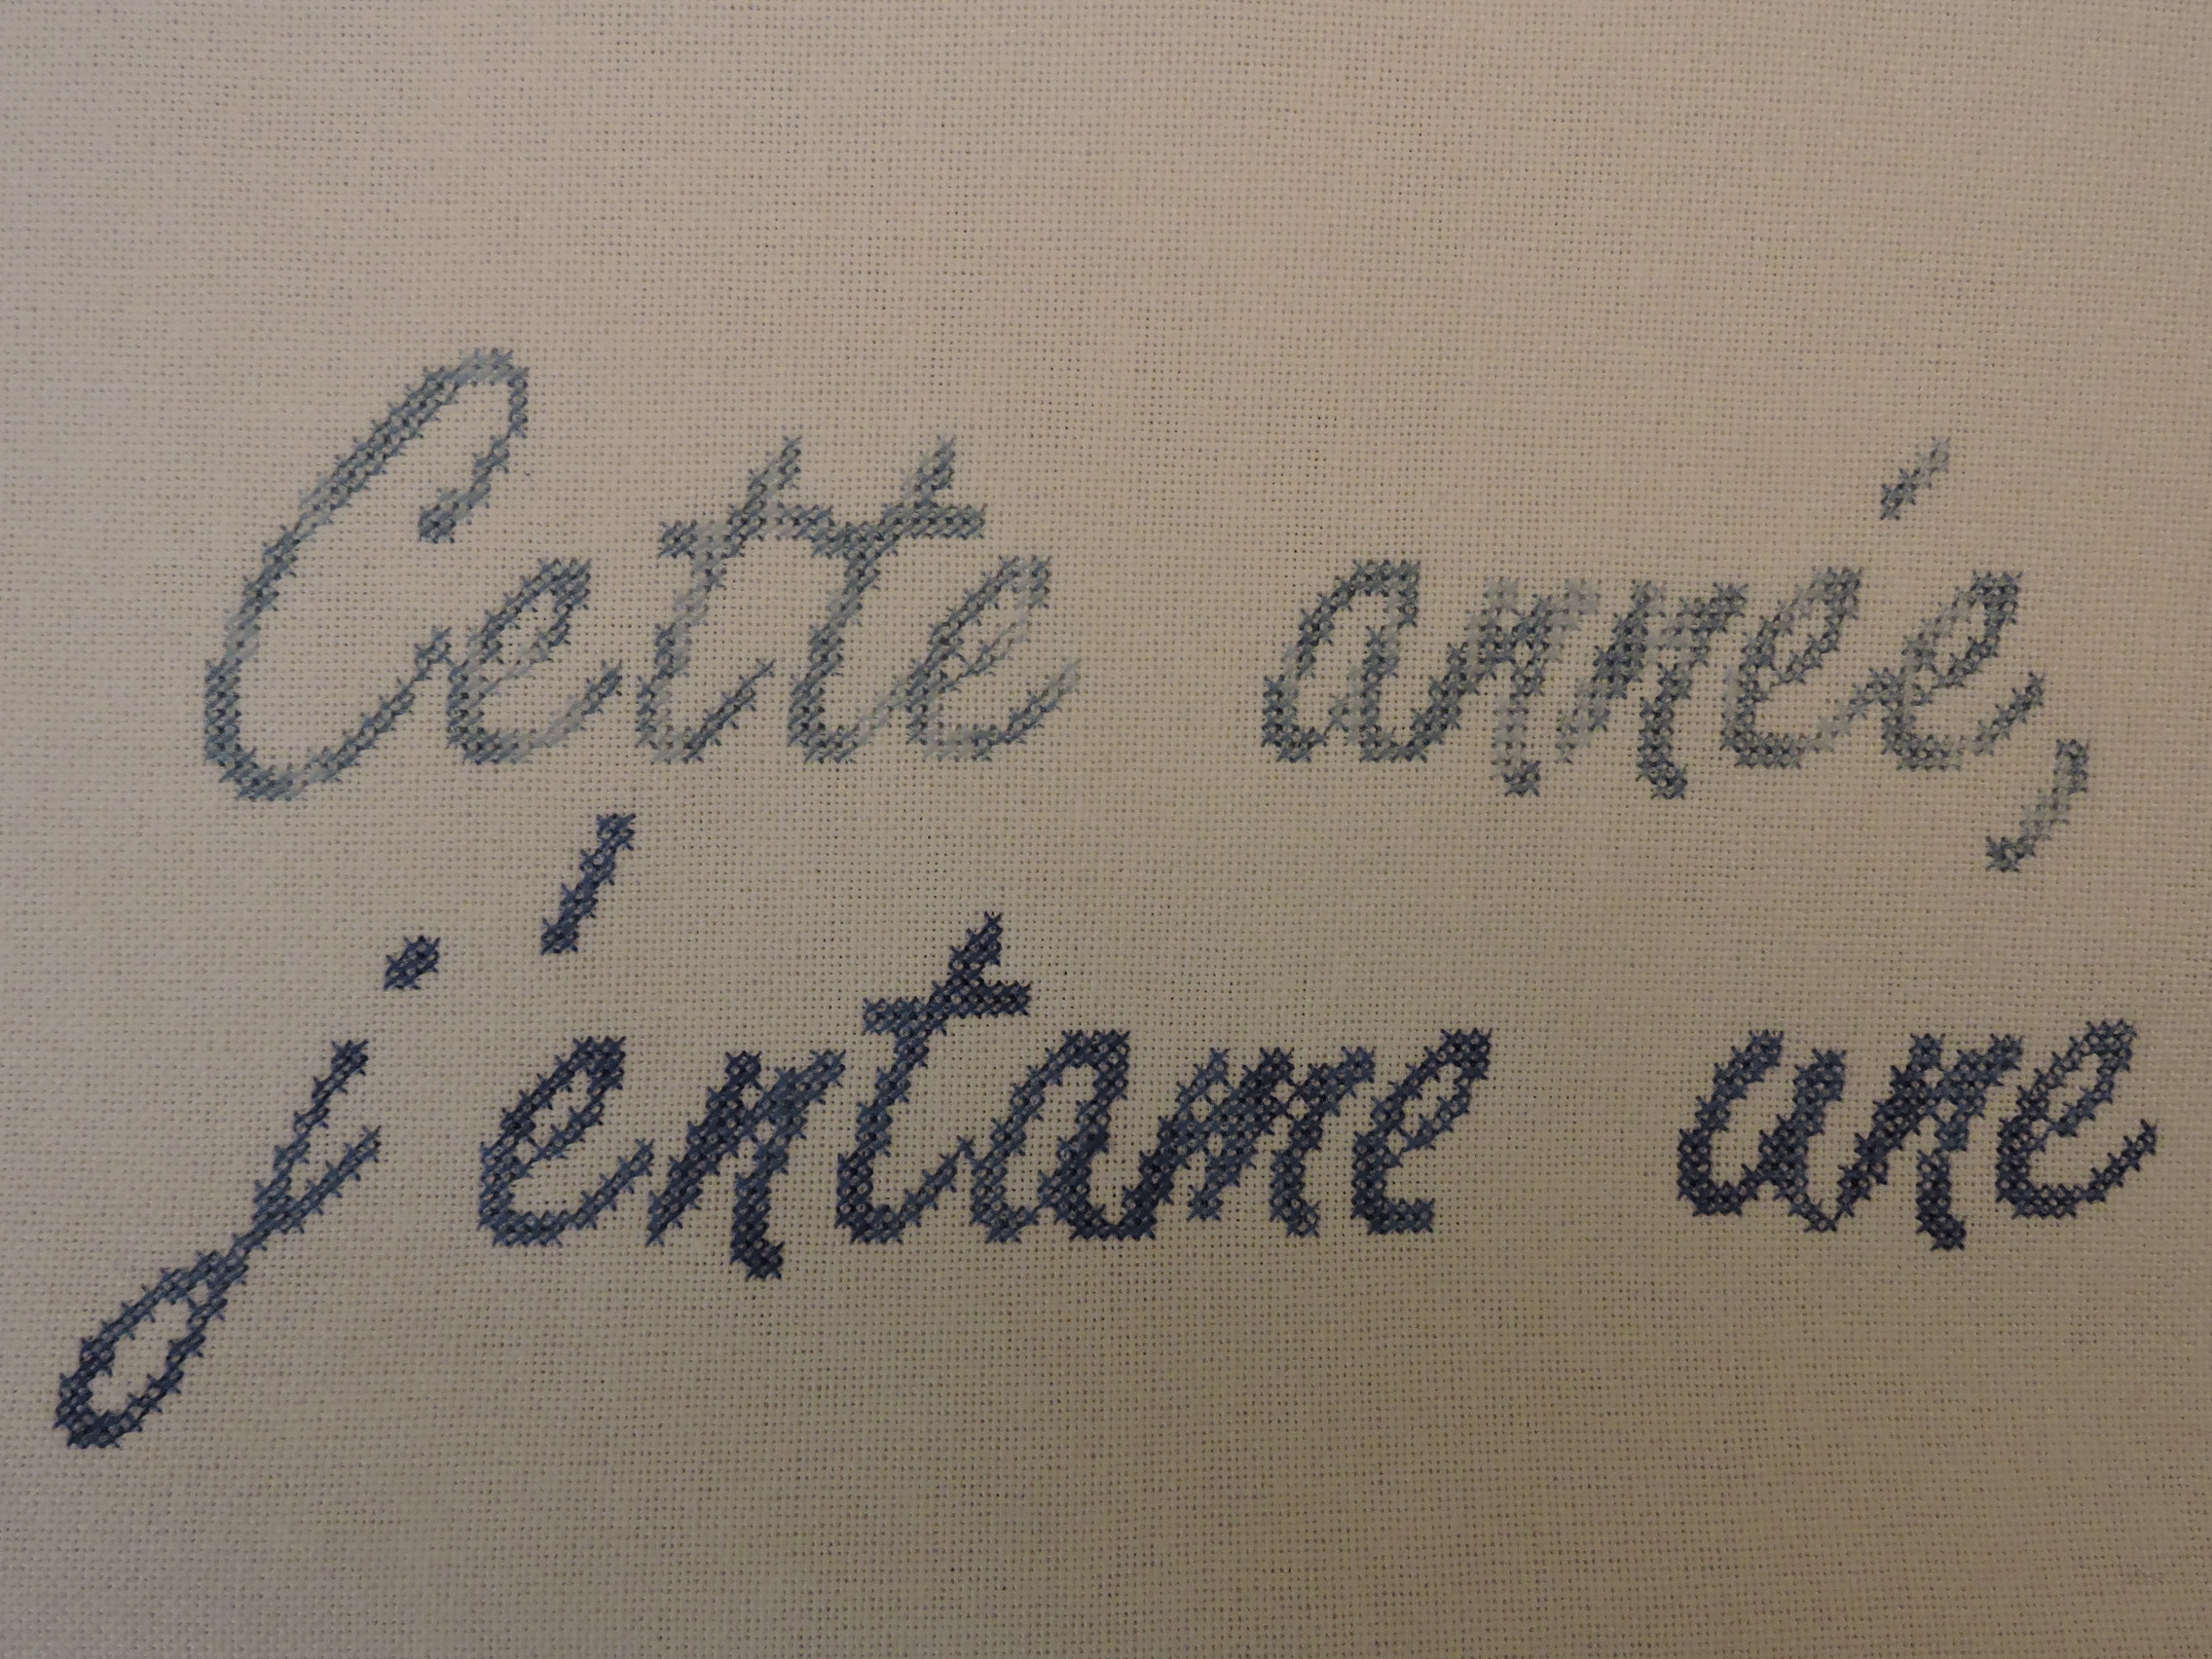 Cette année,
j'entame une